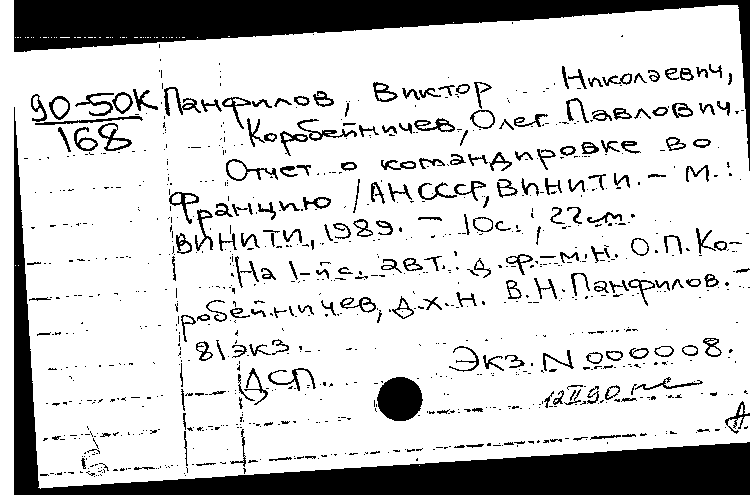 90-50К Панфилов, Виктор Николаевич,
168 Коробейничев, Олег Павлович.
Отчет о командировке во
Францию / АН СССР, ВИНИТИ. - М.:
ВИНИТИ, 1989. - 10с.; 22см.
На 1-й с. авт.: д.ф.-м.н. О.П. Ко-
робейничев, д.х.н. В.Н. Панфилов. -
81 экз.
Экз. N 000008.
ДСП.
12 II 90
б
А